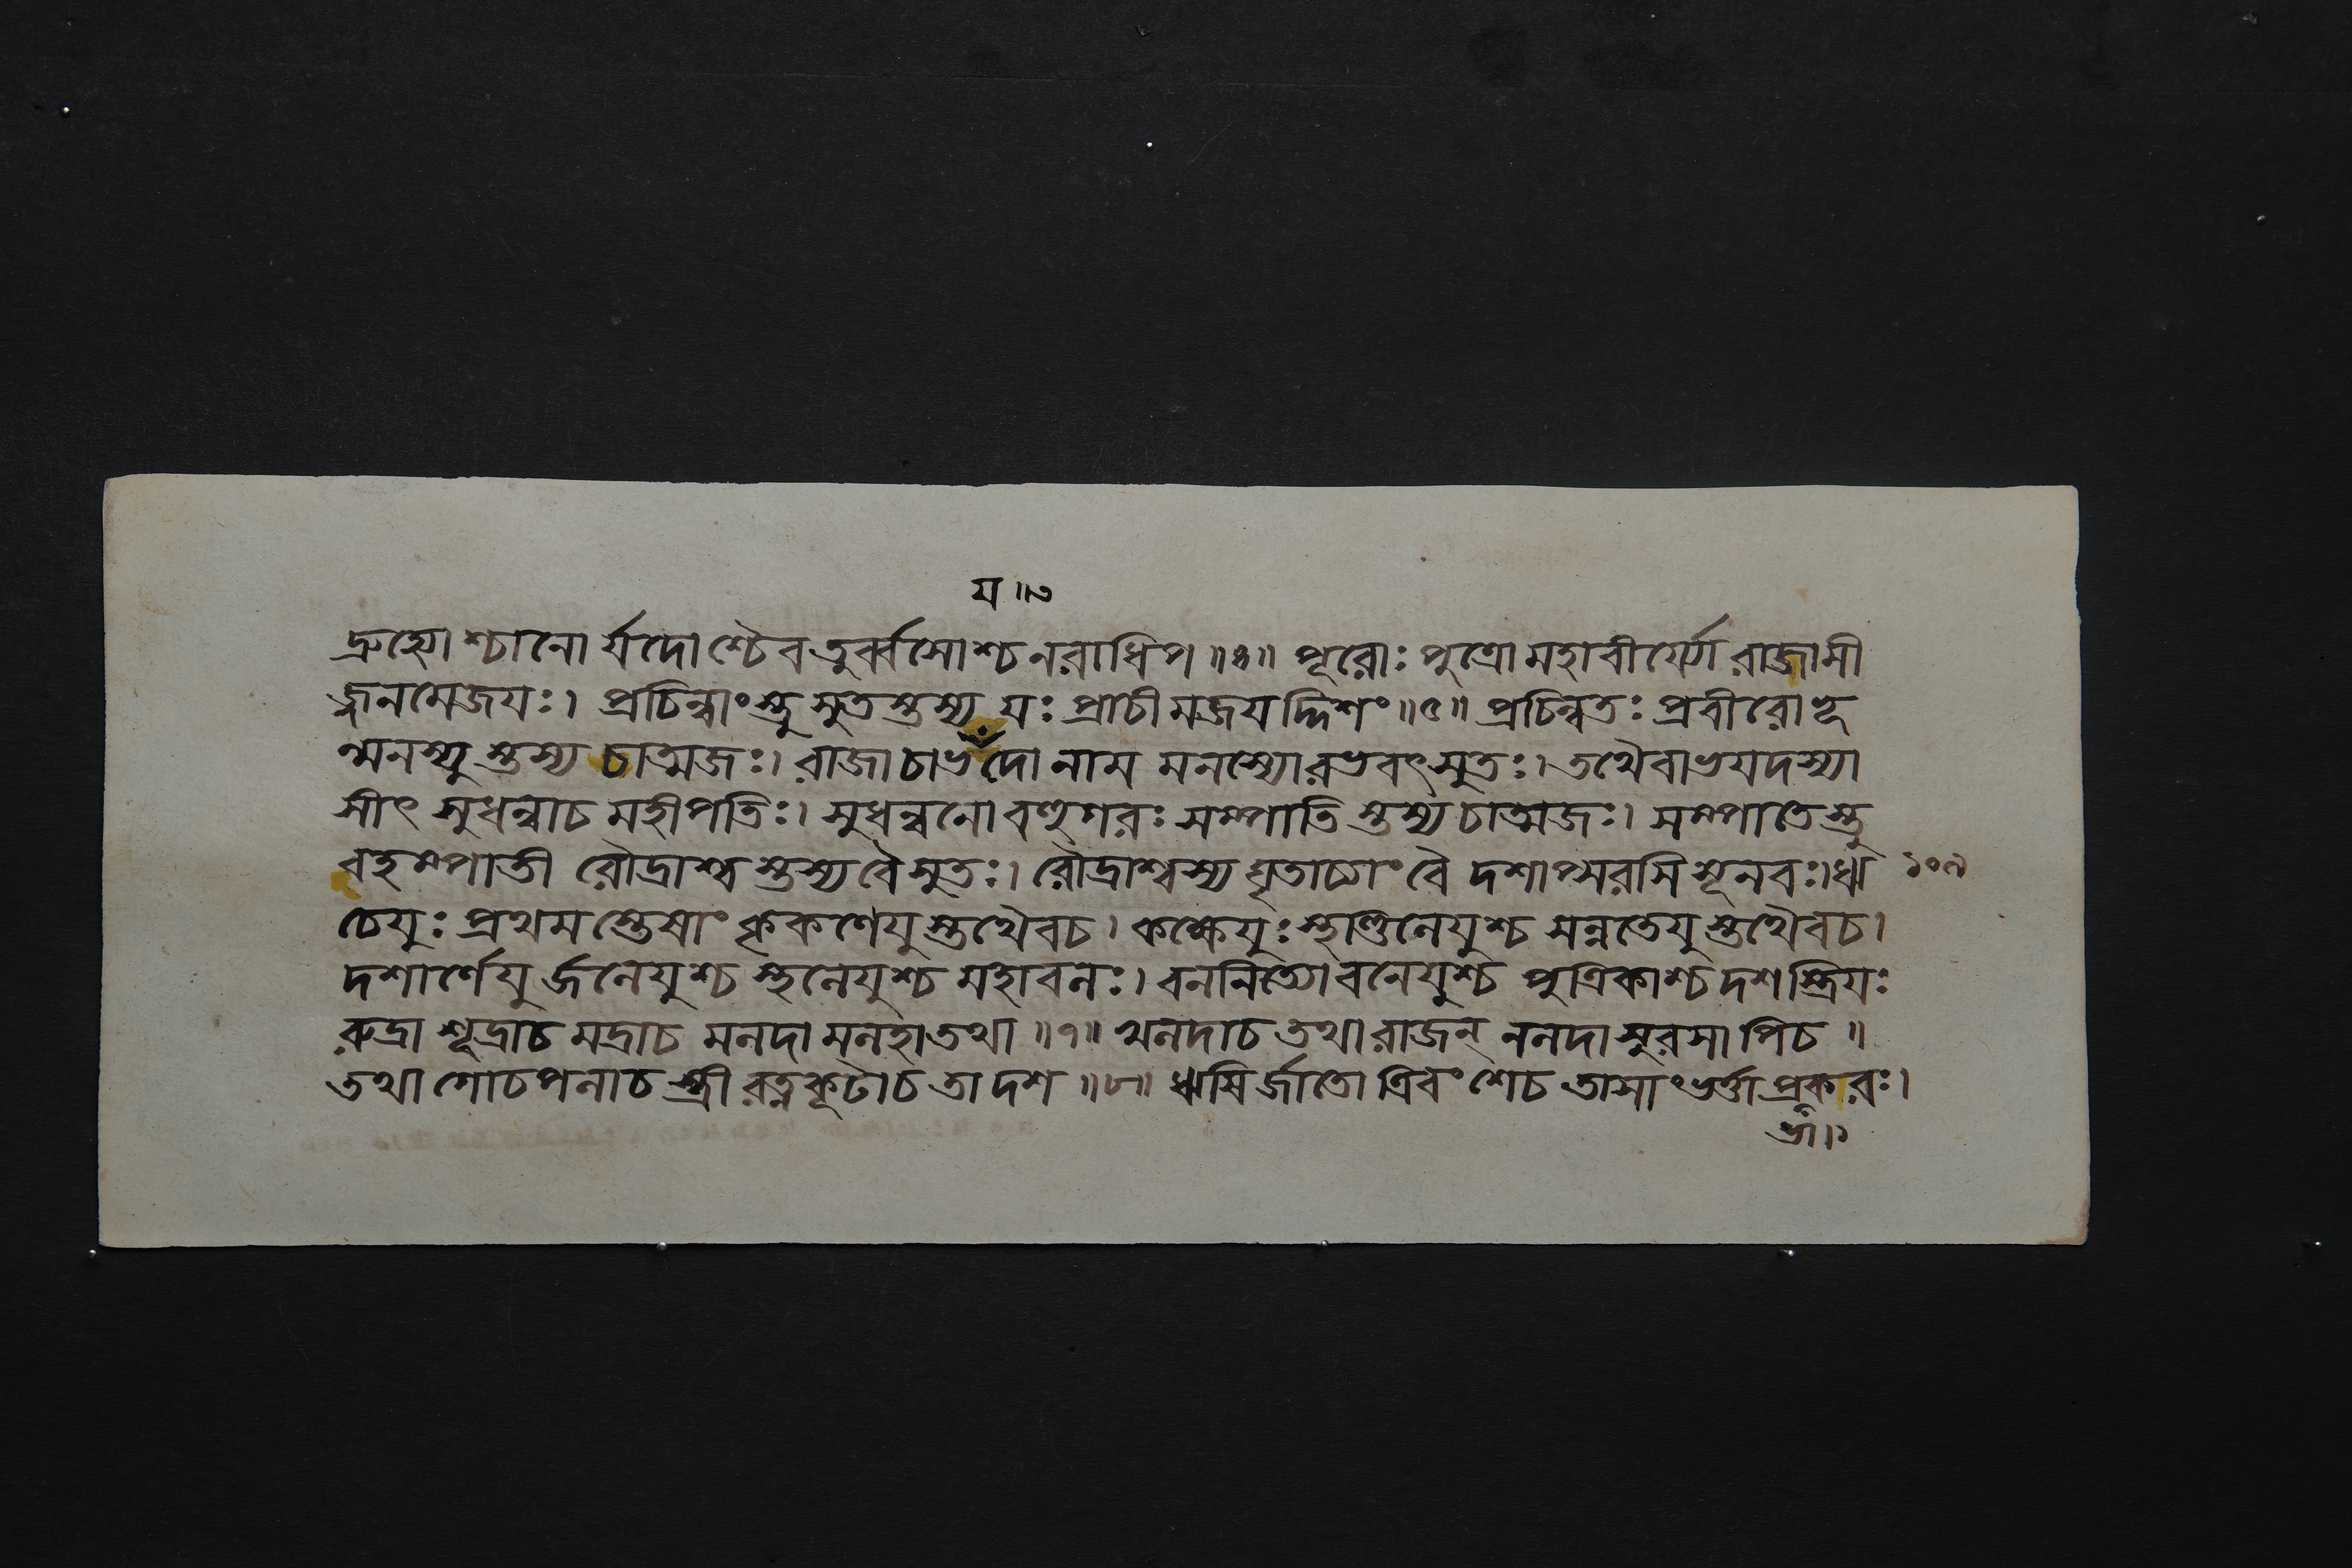 য॥৩
দ্রুহ্যোশ্চানোর্যদোশ্চৈব তুর্ব্বসোশ্চ নরাধিপ॥৪॥ পূরোঃ পুত্রো মহাবীর্য্যো রাজাসী
জ্জনমেজযঃ। প্রচিন্বাংস্তু সুতস্তস্য যঃ প্রাচীমজযদ্দিশং॥৫॥ প্রচিন্বতঃ প্রবীরোভূ
ন্মনস্যুস্তস্য চাত্মজঃ। ৰাজা চাভদো নাম মনস্যোরভবৎ সুতঃ। তথৈবাভযদস্যা
সীৎ সুধন্বাচ মহীপতিঃ। সুধন্বনো বহুগৰঃ সম্পাতিস্তস্য চাত্মজঃ। সম্পাতেস্তু
বহম্পাতী রৌদ্রাশ্বস্তস্য বৈ সুতঃ। রৌদ্রাশ্বস্য ঘৃতাচ্যাং বৈ দশাপ্সরসি সূনবঃ। ঋ ১০৯
চেযুঃ প্রথমস্তেষাং কৃকণেযুস্তথৈবচ। কক্ষেযুঃ স্থাণ্ডিনেযুশ্চ সন্নতেযুস্তথৈবচ।
দশার্ণেযুর্জনেযুশ্চ স্থনেযুশ্চ মহাবনঃ। বননিত্যো বনেযুশ্চ পুত্রিকাশ্চ দশ স্ত্রিযঃ
ৰুদ্রা শূদ্রাচ মদ্রাচ মনদা মনহা তথা॥৭॥ খনদাচ তথা রাজন্ ননদা সুরসাপিচ॥
তথা গোচপনাচ স্ত্রী ৰত্নকূটাচ তা দশ॥৮॥ ঋষির্জাতো ত্রিবংশেচ তাসাং ভর্ত্তা প্রকাৰঃ।
ভা॥১